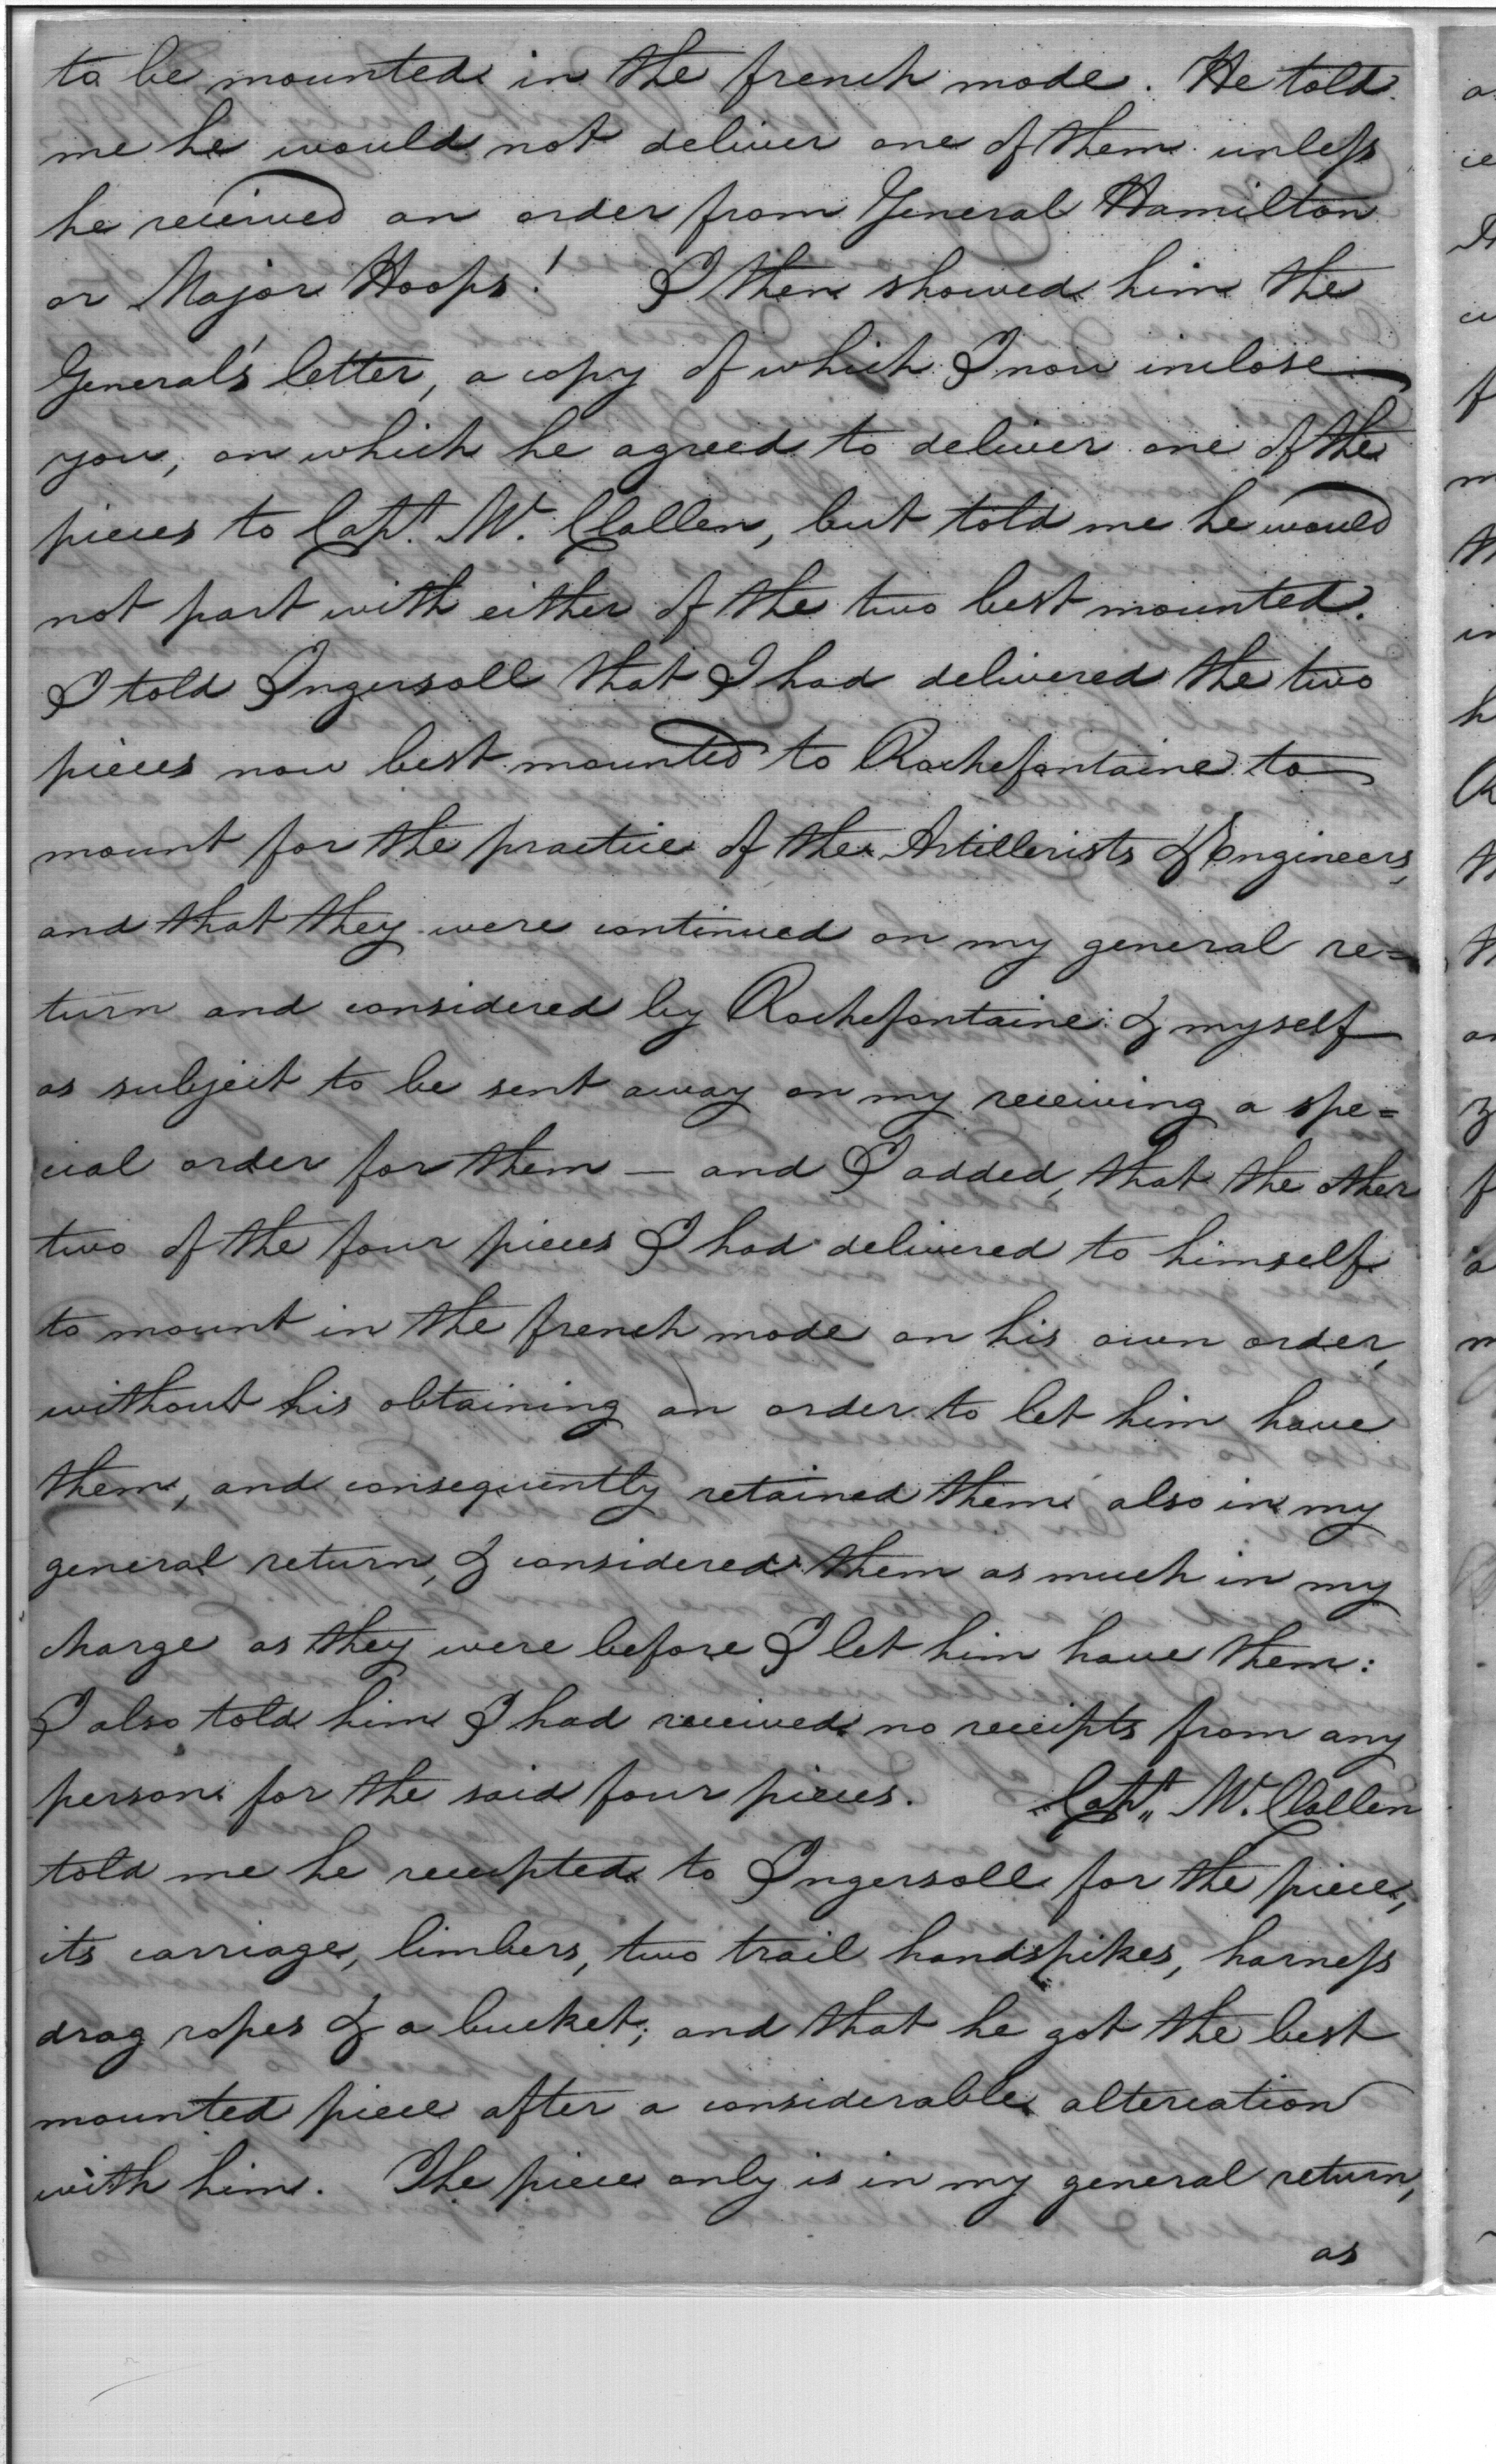 to be mounted in the french mode. He told
me he would not deliver one of them unless
he received an order from General Hamilton
or Major Hoops! I then showed him the
General's letter, a copy of which I now inclose
you, on which he agreed to deliver one of the
pieces to Capt. Mc. Clallen, but told me he would
not part with either of the two best mounted.
I told Ingersoll that I had delivered the two
pieces now best mounted to Rochefontaine to
mount for the practice of the Artillerists & Engineers,
and that they were continued on my general re=
turn and considered by Rochefontaine & myself
as subject to be sent away on my receiving a spe=
cial order for them — and I added, that the other
two of the four pieces I had delivered to himself
to mount in the french mode on his own order,
without his obtaining an order to let him have
them, and consequently retained them also in my
general return, & considered them as much in my
charge as they were before I let him have them:
I also told him I had received no receipts from any
person for the said four pieces. Capt. Mc. Clallen
told me he receipted to Ingersoll for the piece,
its carriage, limbers, two trail handspikes, harness
drag ropes & a bucket; and that he got the best
mounted piece after a considerable altercation
with him. The piece only is in my general return,
as